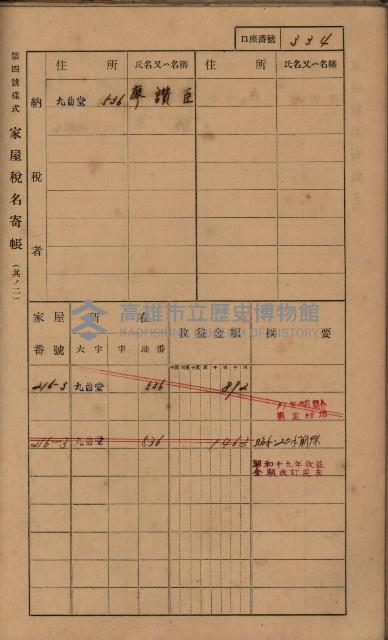 口座番號 334
第四號樣式 家屋稅名寄帳 (其ノ二)
納稅者
住所 氏名又ハ名稱 住所 氏名又ハ名稱
九曲堂 536 廖讚臣
家屋番號 家屋所在 收益金額 摘要
大字 字 地番
高雄市立歷史博物館
KAOHSIUNG MUSEUM OF HISTORY
216-3 九曲堂 536 892
216-3 九曲堂 536 1462
昭和十九年收益
金額改訂